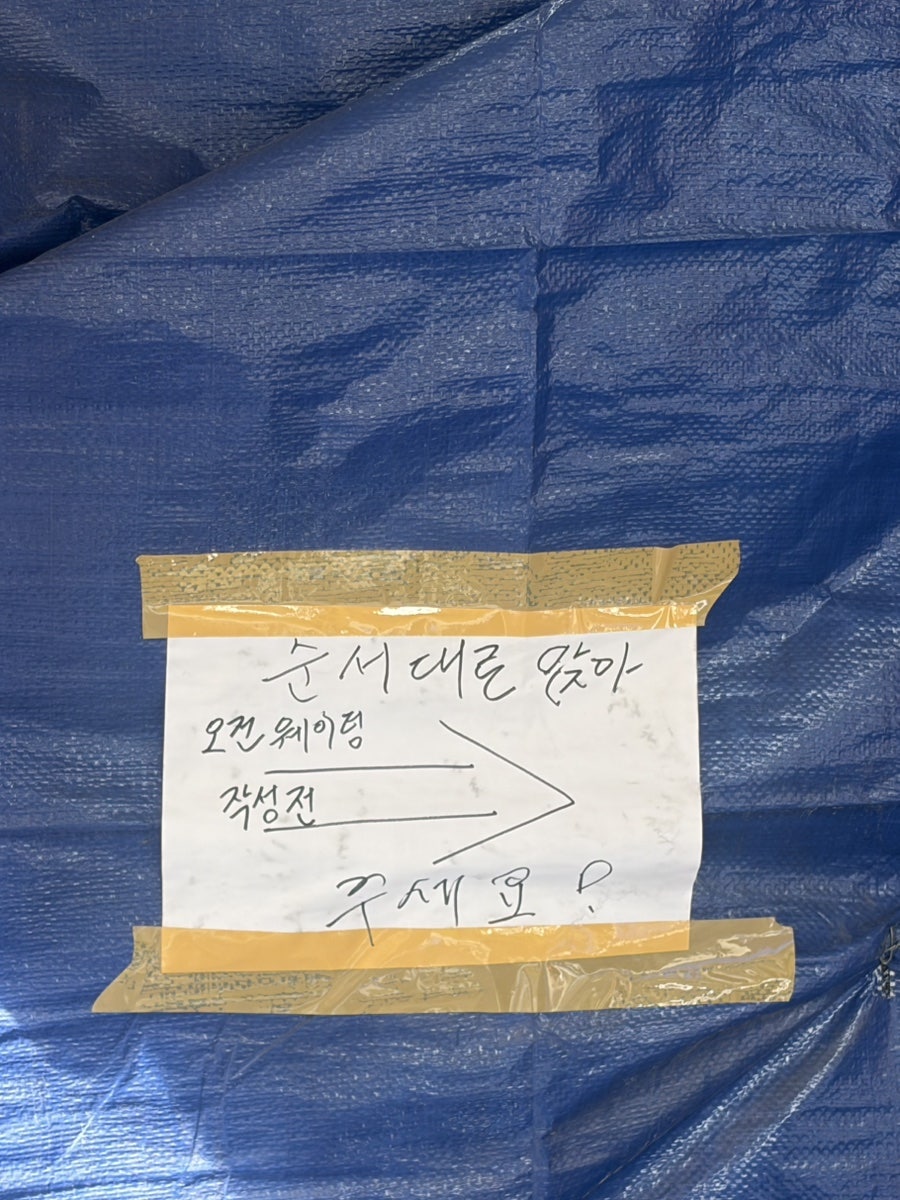 순서대로 앚아
오전 웨이팅
작성전
주세요!